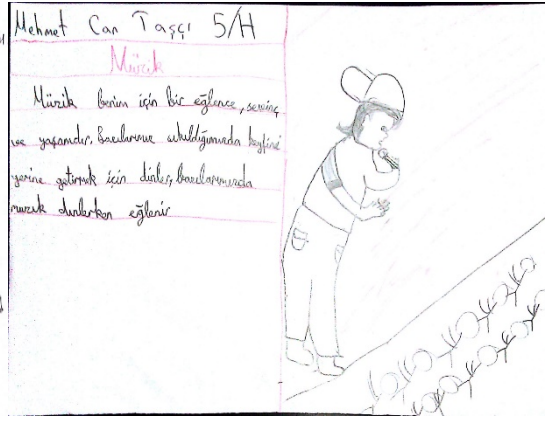 Mehmet Can Taşçı 5/H
Müzik
Müzik benim için bir eğlence, sevinç
ve yaşamdır. Bazılarımız sıkıldığımızda keyfini
yerine getirmek için dinler, bazılarımızda
muzik dinlerken eğlenir